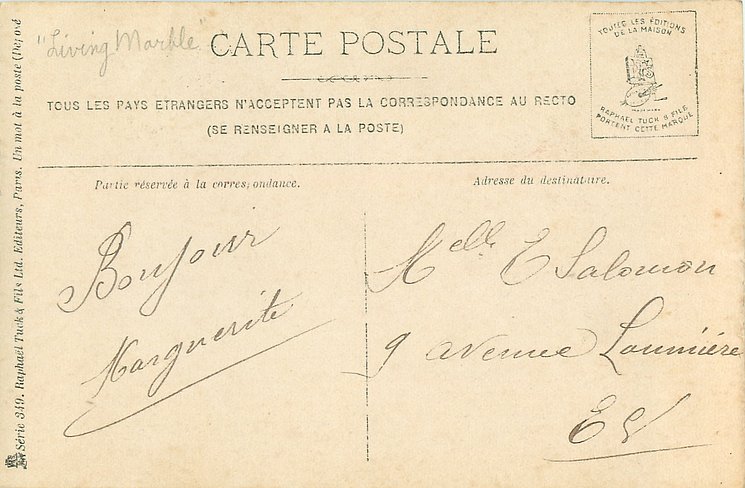 "Living Marble"
CARTE POSTALE
TOUS LES PAYS ETRANGERS N'ACCEPTENT PAS LA CORRESPONDANCE AU RECTO
(SE RENSEIGNER A LA POSTE)
TOUTES LES ÉDITIONS
DE LA MAISON
RAPHAEL TUCK & FILS
PORTENT CETTE MARQUE
Partie réservée à la correspondance.
Bonjour
Marguerite
Adresse du destinataire.
Melle E Salomon
9 avenue Laumière
EV
Série 349. Raphaël Tuck & Fils Ltd. Editeurs, Paris. Un mot à la poste (Déposé